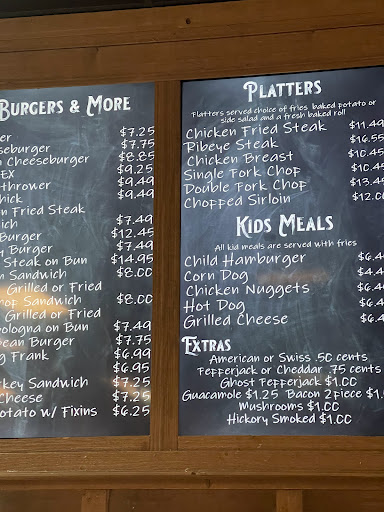 Burgers & More
$7.25
$7.75
Cheeseburger $8.85
EX $9.25
thrower $9.49
hick $9.49
n Fried Steak
ich $7.49
Burger $12.45
Burger $7.49
Steak on Bun $14.95
n Sandwich $8.00
Grilled or Fried
Sandwich $8.00
Grilled or Fried
ologna on Bun $7.49
ean Burger $7.75
g Frank $6.99
$6.95
key Sandwich $7.25
Cheese $7.25
otato w/ Fixins $6.25
Platters
Platters served choice of fries baked potato or
side salad and a fresh baked roll
Chicken Fried Steak $11.49
Ribeye Steak $16.55
Chicken Breast $10.45
Single Pork Chop $10.45
Double Pork Chop $13.4
Chopped Sirloin $12.0
Kids Meals
All kid meals are served with fries
Child Hamburger $6.4
Corn Dog $4.4
Chicken Nuggets $6.4
Hot Dog $6.4
Grilled Cheese $6.4
Extras
American or Swiss .50 cents
Pepperjack or Cheddar .75 cents
Ghost Pepperjack $1.00
Guacamole $1.25 Bacon 2 piece $1.
Mushrooms $1.00
Hickory Smoked $1.00